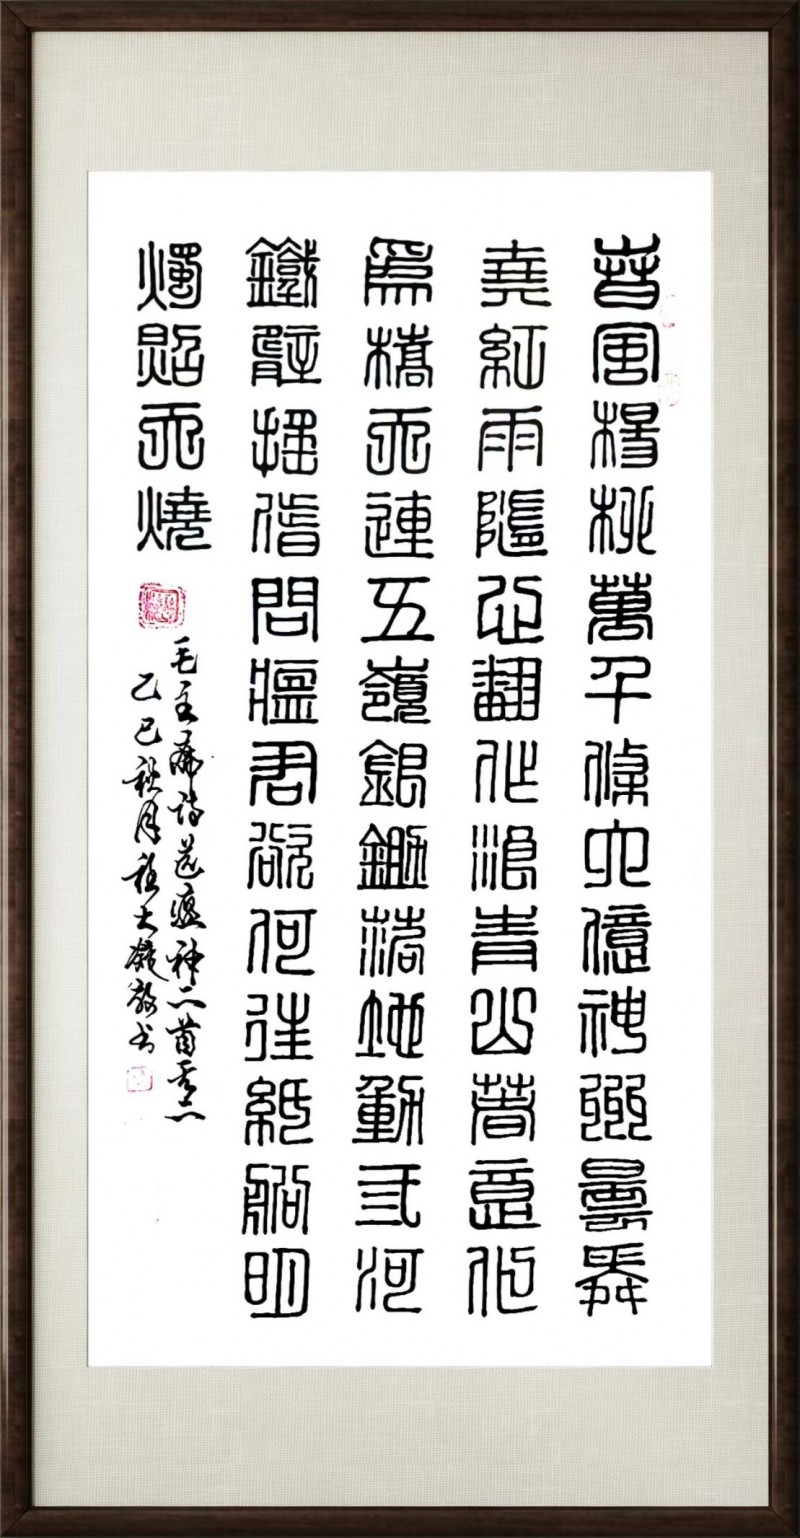 春風楊柳萬千條六億神州盡舜
堯紅雨隨心翻作浪青山著意化
爲橋天連五嶺銀鋤落地動弎河
鐵臂搖借問瘟君欲何往紙船明
燭照天燒
毛主席诗送瘟神二首其二
乙巳秋月 大 敬书